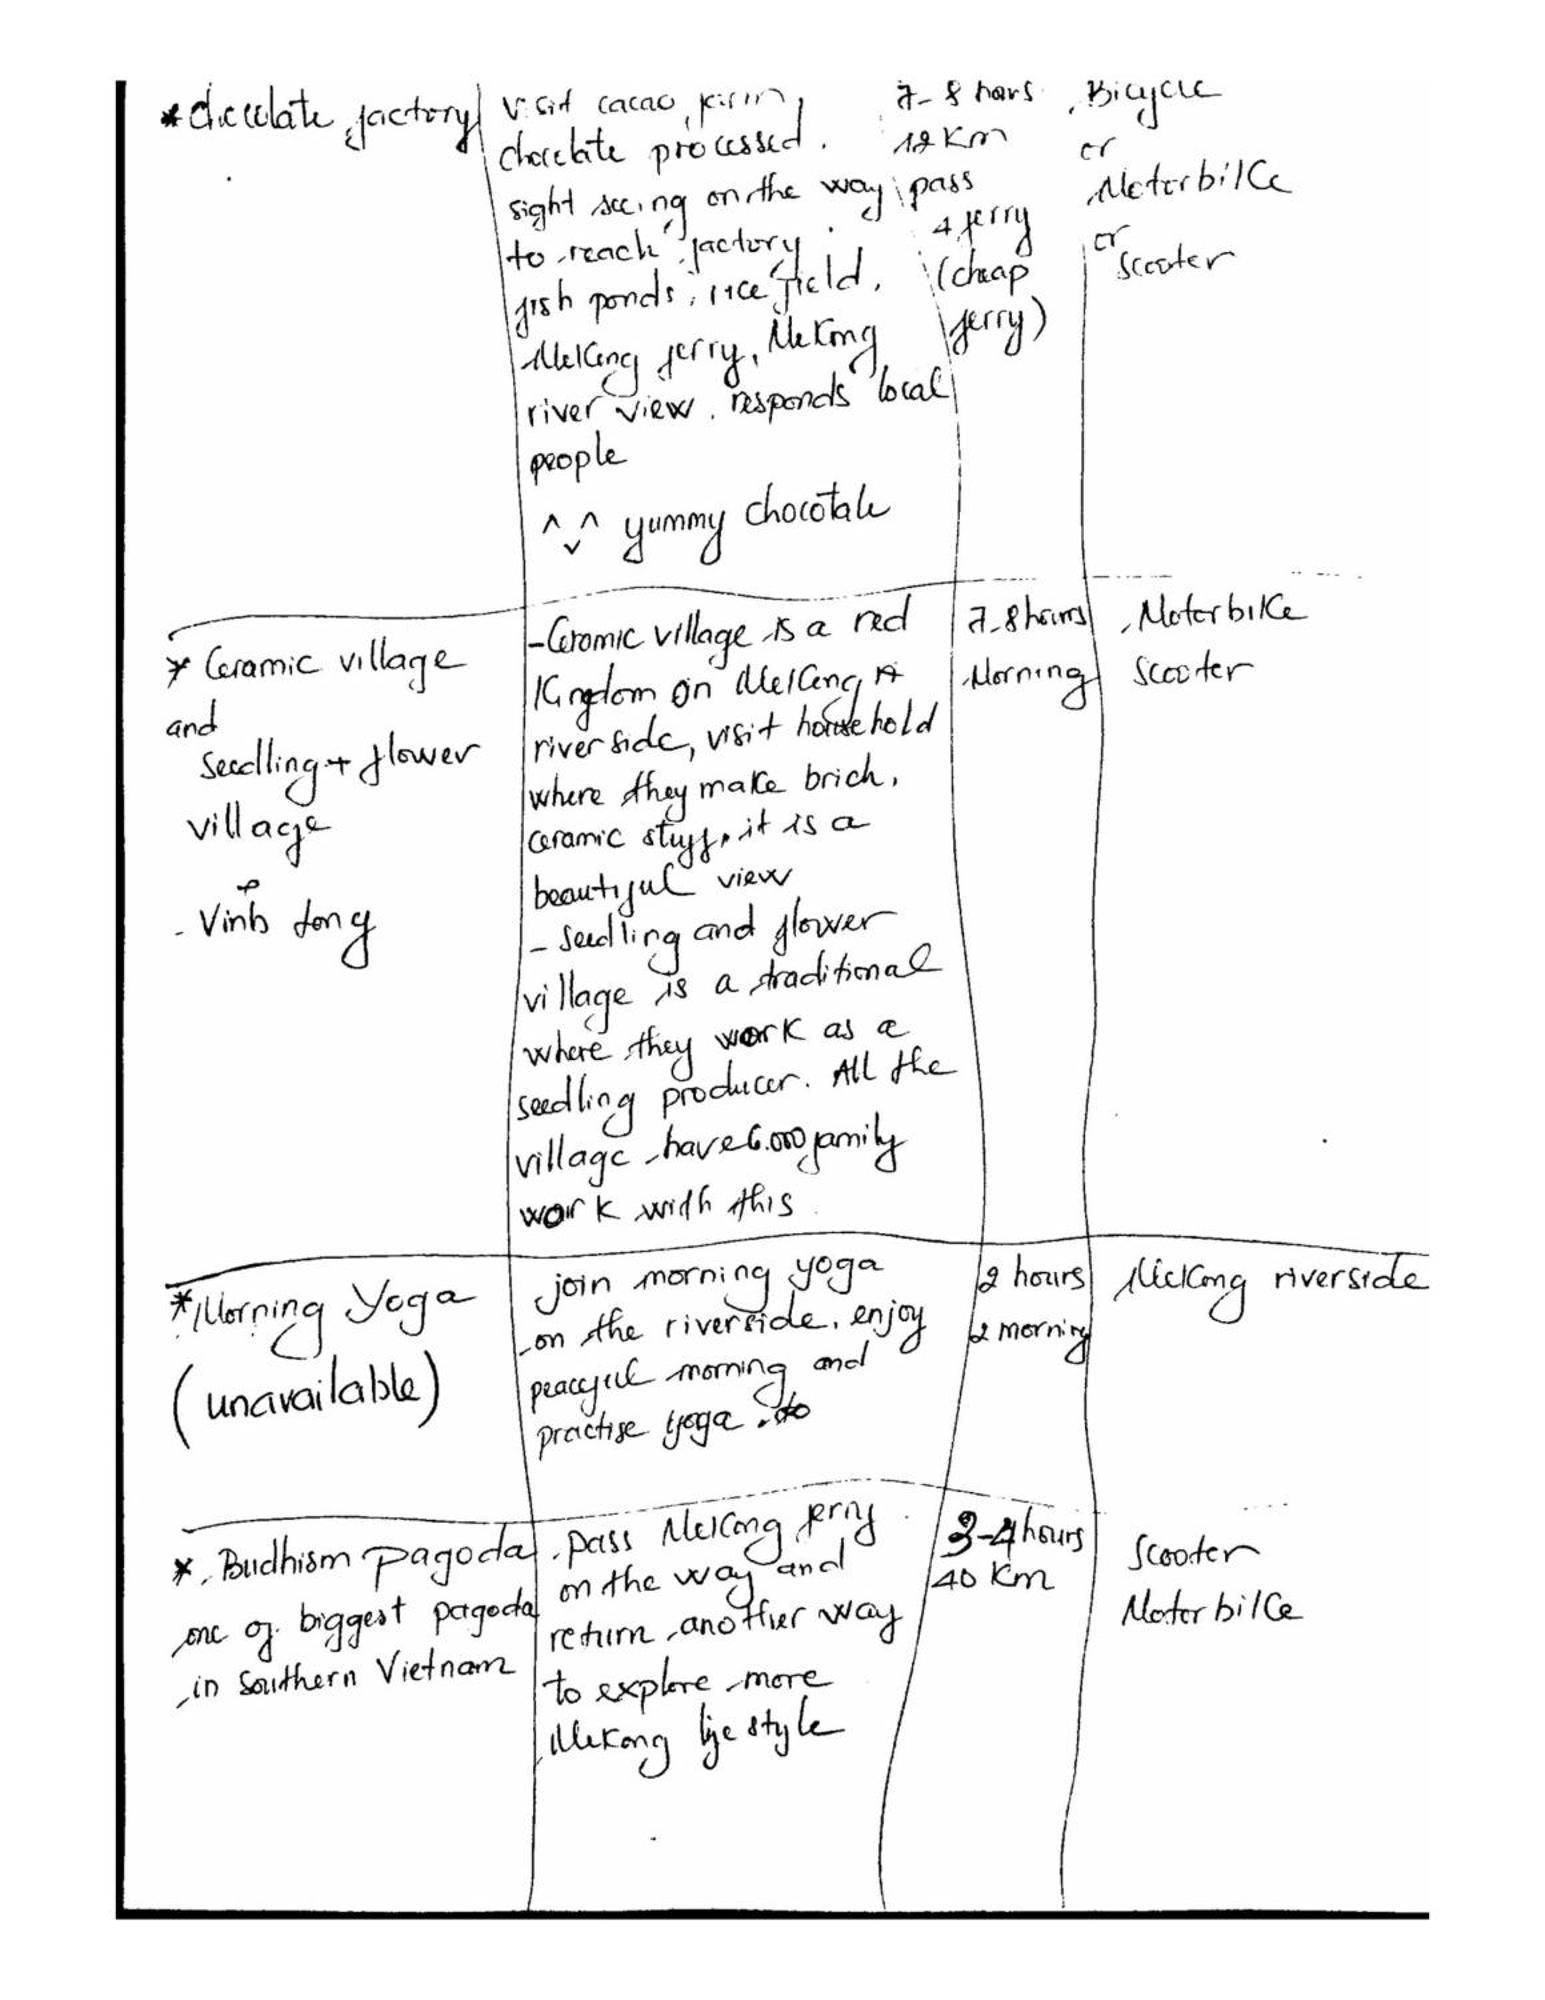 * Chocolate factory
visit cacao farm,
chocolate processed.
sight seeing on the way
to reach factory.
fish ponds, rice field,
Mekong ferry, Mekong
river view. responds local
people
^v^ yummy chocotale
7-8 hours
12 Km
pass
4 ferry
(cheap
ferry)
Bicycle
or
Motorbike
or
Scooter
* Ceramic village
and
Seedling + flower
village
- Vinh Long
- Ceramic village is a red
Kingdom on Mekong
riverside, visit household
where they make brich,
ceramic stuff, it is a
beautiful view
- Seedling and flower
village is a traditional
where they work as a
seedling producer. All the
village have 6.000 family
work with this
7-8 hours
Morning
Motorbike
Scooter
* Morning Yoga
(unavailable)
join morning yoga
on the riverside, enjoy
peaceful morning and
practise yoga.
2 hours
2 morning
Mekong riverside
* Budhism pagoda
one of biggest pagoda
in Southern Vietnam
pass Mekong ferry
on the way and
return another way
to explore more
Mekong life style
3-4 hours
40 Km
Scooter
Motorbike